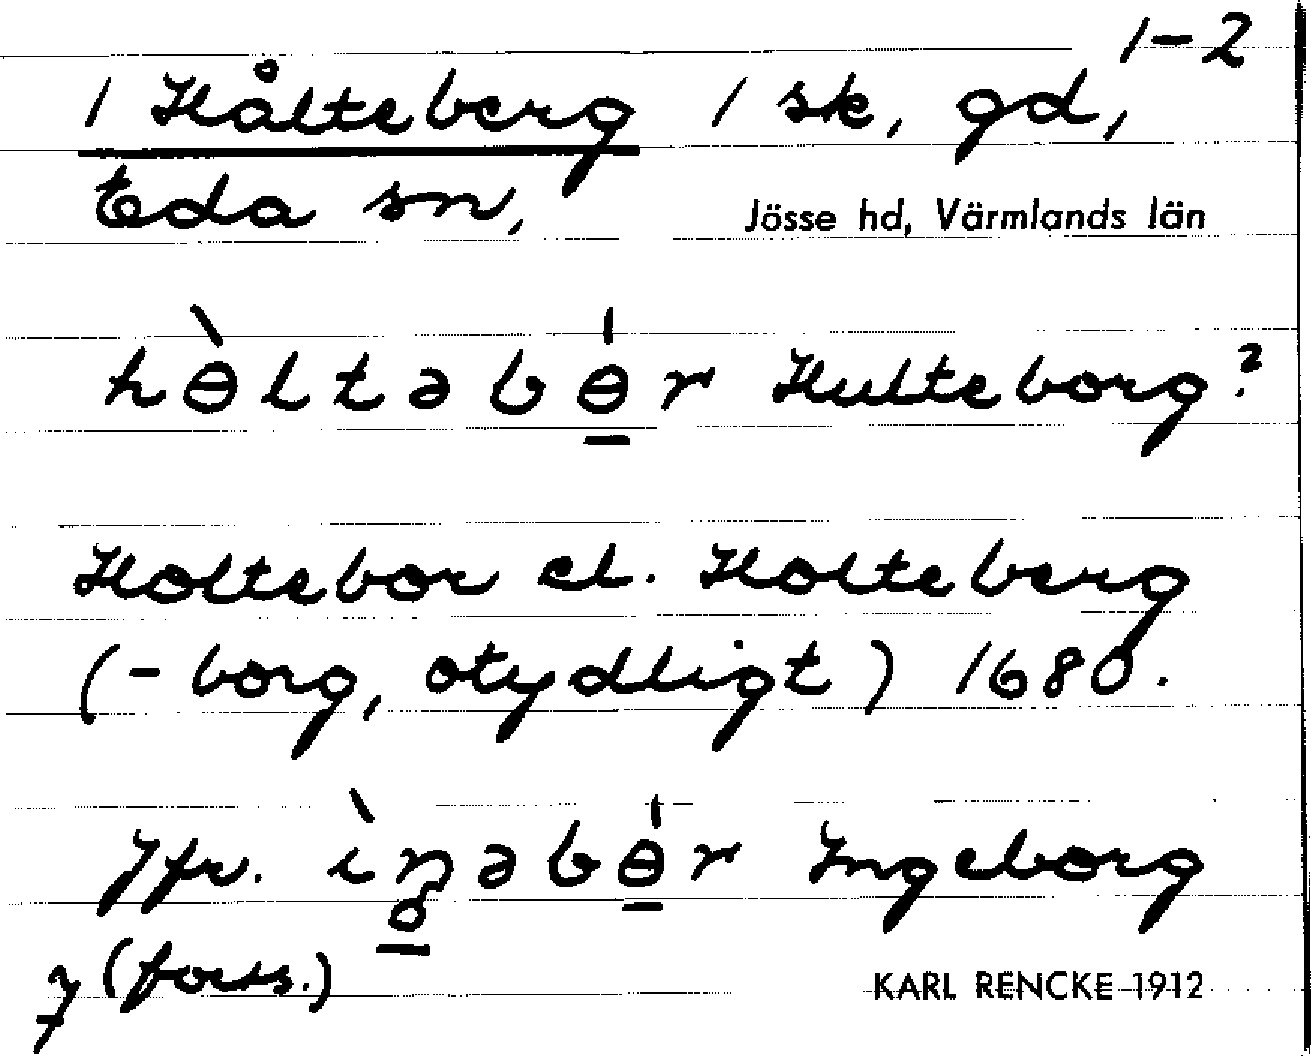 1-2
1 Hålteberg 1 sk, gd,
Eda sn, Jösse hd, Värmlands län
hɵ̀ltəbɵ́r Hulteborg?
Holtebor el. Holteberg
(-borg, otydligt) 1680.
Jfr. ìŋəbɵ́r Ingeborg
(forts.)
KARL RENCKE 1912